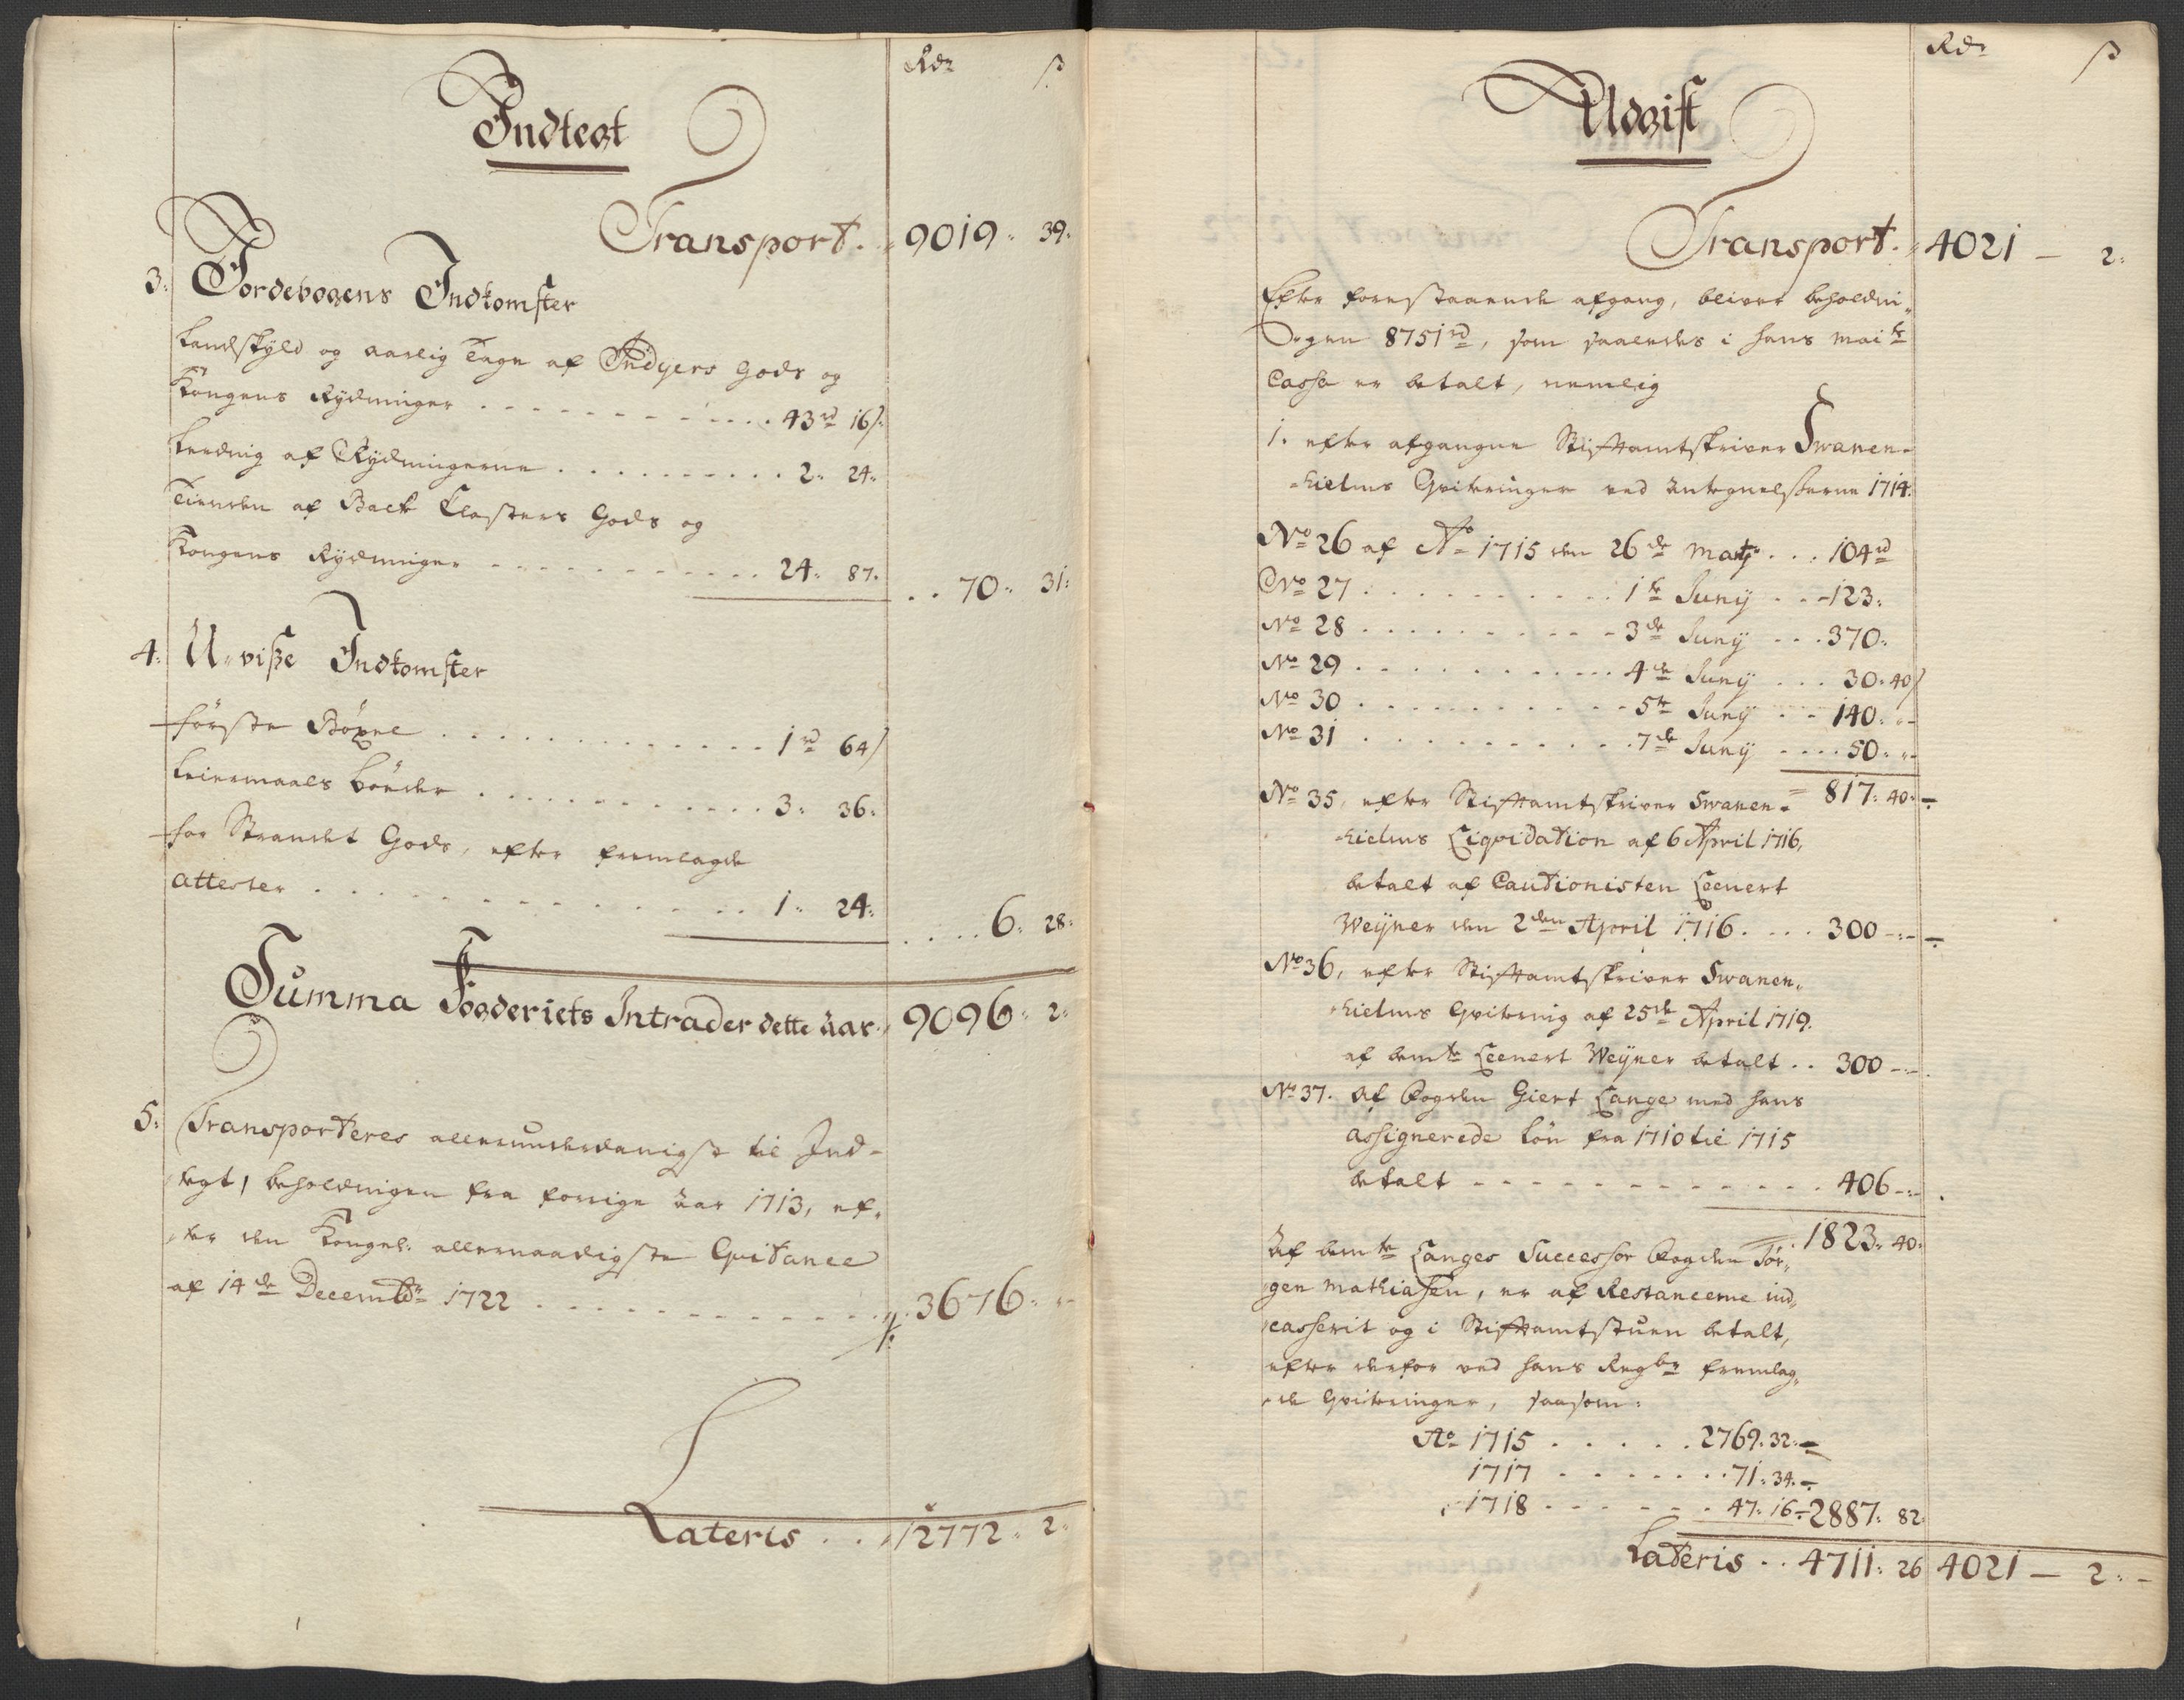 Rdr ß
Indtegt
Transport . . 9019 „ 39 „
3: Jordebogens Indkomster
Landskyld og aarlig Tage af Indyers Gods og
Kongens Rydninger . . . . . . . . . . . 43 rd 16 ß
Leeding af Rydningerne . . . . . . . . . 2 „ 24 „
Tienden af Back Closters Gods og
Kongens Rydninger . . . . . . . . . . . 24 „ 87 „ . . 70 „ 31 „
4: U-viße Indkomster
første Böxel . . . . . . . . . . . . 1 rd 64 ß
Leiermaals Böder . . . . . . . . . . . 3 „ 36 „
for Strandet Gods, efter fremlagde
attester . . . . . . . . . . . . . 1 „ 24 „ . . . . 6 „ 28 „
Summa Fogderiets Intrader dette aar . 9096 „ 2 „
5: Transporteres allerunderdanigst til Ind-
tegt, beholdningen fra forrige aar 1713, ef-
ter den Kongel: allernaadigste Qvitance
af 14 de Decembr 1722 . . . . . . . . . . 3676 „ „
Lateris . . 12772 „ 2 „
Rdr ß
Udgift
Transport . 4021 — 2 „
Efter forestaaende afgang, bliver beholdni-
ngen 8751 rd, som saaledes i hans Maits
Cassa er betalt, nemlig
1. efter afgangne Stiftamtskriver Swanen-
hielms Qviteringer ved Antegnelserne 1714.
No 26 af Ao 1715 den 26 de Martj . . . 104 rd
No 27 . . . . . . . . . . 1 te Junij . . . 123 „
No 28 . . . . . . . . . . 3 de Junij . . . 370 „
No 29 . . . . . . . . . . 4 de Junij . . . 30 „ 40 ß
No 30 . . . . . . . . . . 5 te Junij . . . 140 „ „
No 31 . . . . . . . . . . 7 de Junij . . . . 50 „ „
817 „ 40 „
No 35, efter Stiftamtskriver Swanen-
hielms Liqvidation af 6 April 1716,
betalt af Cautionisten Leenert
Weyner den 2 den April 1716 . . . . 300 „
No 36, efter Stiftamtskriver Swanen-
hielms Qvitering af 25 de April 1719.
af bemte Leenert Weyner betalt . . 300 „
No 37. af Fogden Giert Lange med hans
assignerede Lön fra 1710 til 1715
betalt . . . . . . . . . . . . . 406 „
1823 „ 40 „
Af bemte Langes Successor Fogden Jör-
gen Mathiasen, er af Restancerne ind-
casserit og i Stiftamtstuen betalt,
efter derfor ved hans Regbr fremlag-
de Qviteringer, saasom:
Ao 1715 . . . . . 2769 „ 32 „
1717 . . . . . . . 71 „ 34 „
1718 . . . . . . . 47 „ 16 „ 2887 „ 82
Lateris . . 4711 „ 26 4021 — 2 „